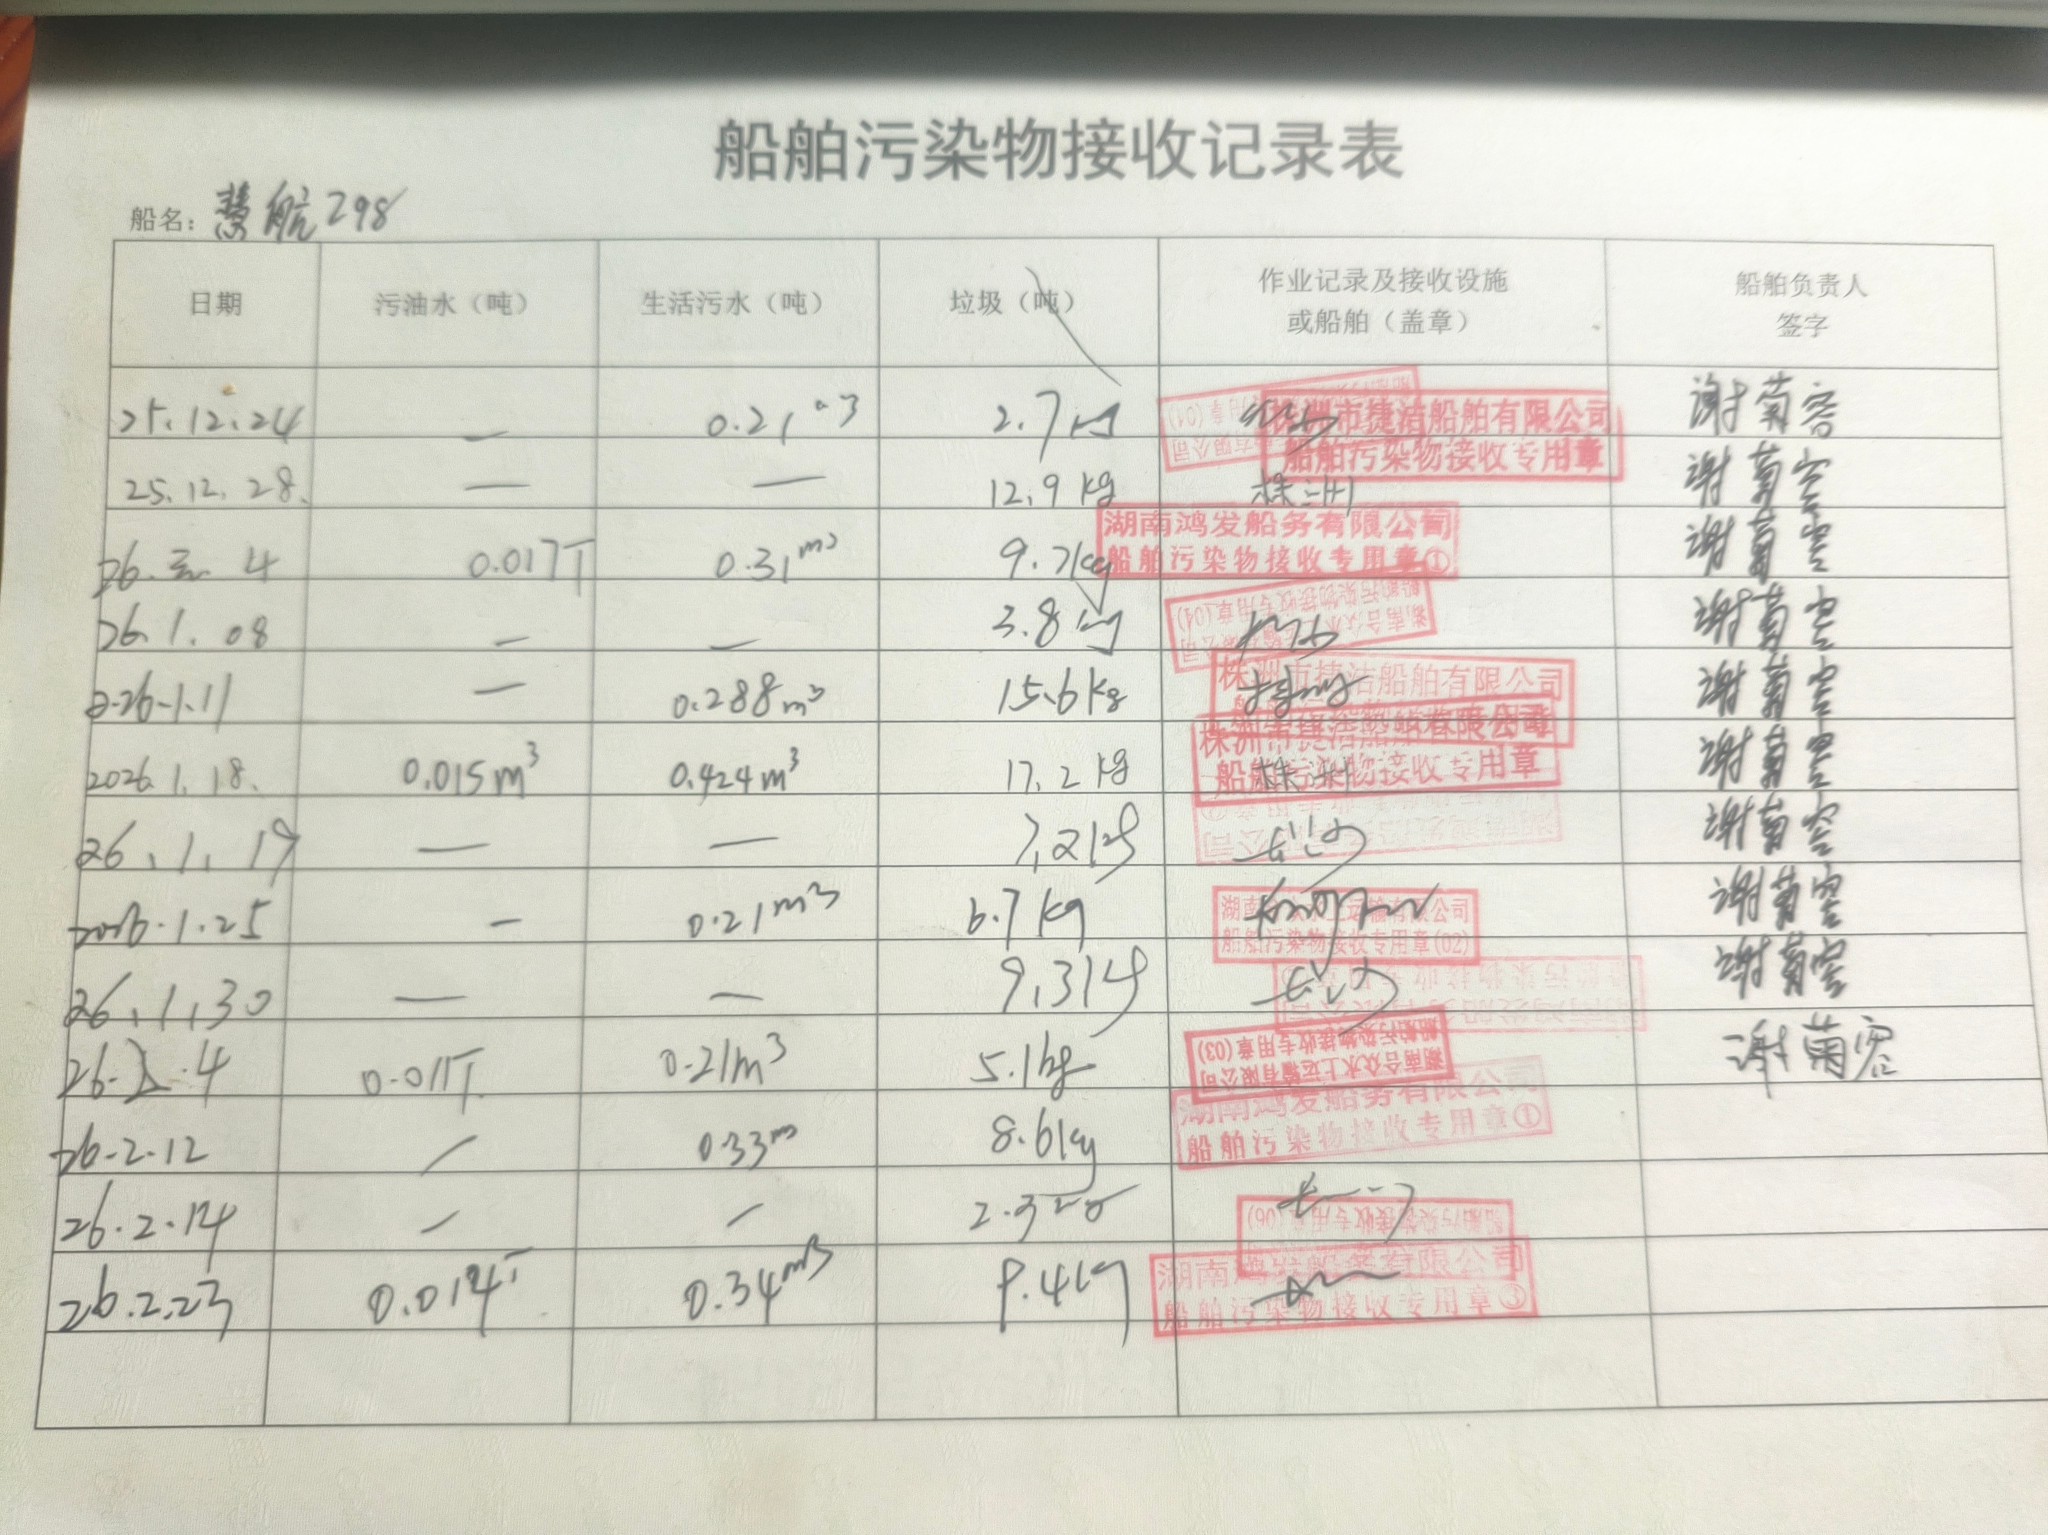 船舶污染物接收记录表
船名: 慧航298
日期 污油水（吨） 生活污水（吨） 垃圾（吨） 作业记录及接收设施或船舶（盖章） 船舶负责人签字
25.12.24 — 0.21 m3 2.7kg 株洲市捷洁船舶有限公司 船舶污染物接收专用章 谢菊容
25.12.28. — — 12.9kg 株洲 谢菊容
26. 4 0.017T 0.31m3 9.7kg 湖南鸿发船务有限公司 船舶污染物接收专用章① 谢菊容
26.1.08 — — 3.8kg 湖南合众水上运输有限公司 船舶污染物接收专用章(04) 谢菊容
2026.1.11 — 0.288m3 15.6kg 株洲市捷洁船舶有限公司 谢菊容
2026.1.18. 0.015m3 0.424m3 17.2kg 株洲市捷洁船舶有限公司 船舶污染物接收专用章 株洲 谢菊容
26.1.19 — — 7.2kg 长沙 谢菊容
2026.1.25 — 0.21m3 6.7kg 湖南合众水上运输有限公司 船舶污染物接收专用章(02) 谢菊容
26.1.30 — — 9.3kg 长沙 谢菊容
26.2.4 0.011T 0.21m3 5.1kg 湖南合众水上运输有限公司 船舶污染物接收专用章(03) 谢菊容
26.2.12 / 0.33m 8.6kg 湖南鸿发船务有限公司 船舶污染物接收专用章①
26.2.14 / / 2.3 船舶污染物接收专用章(06)
26.2.23 0.014T 0.34m3 9.4kg 湖南鸿发船务有限公司 船舶污染物接收专用章③